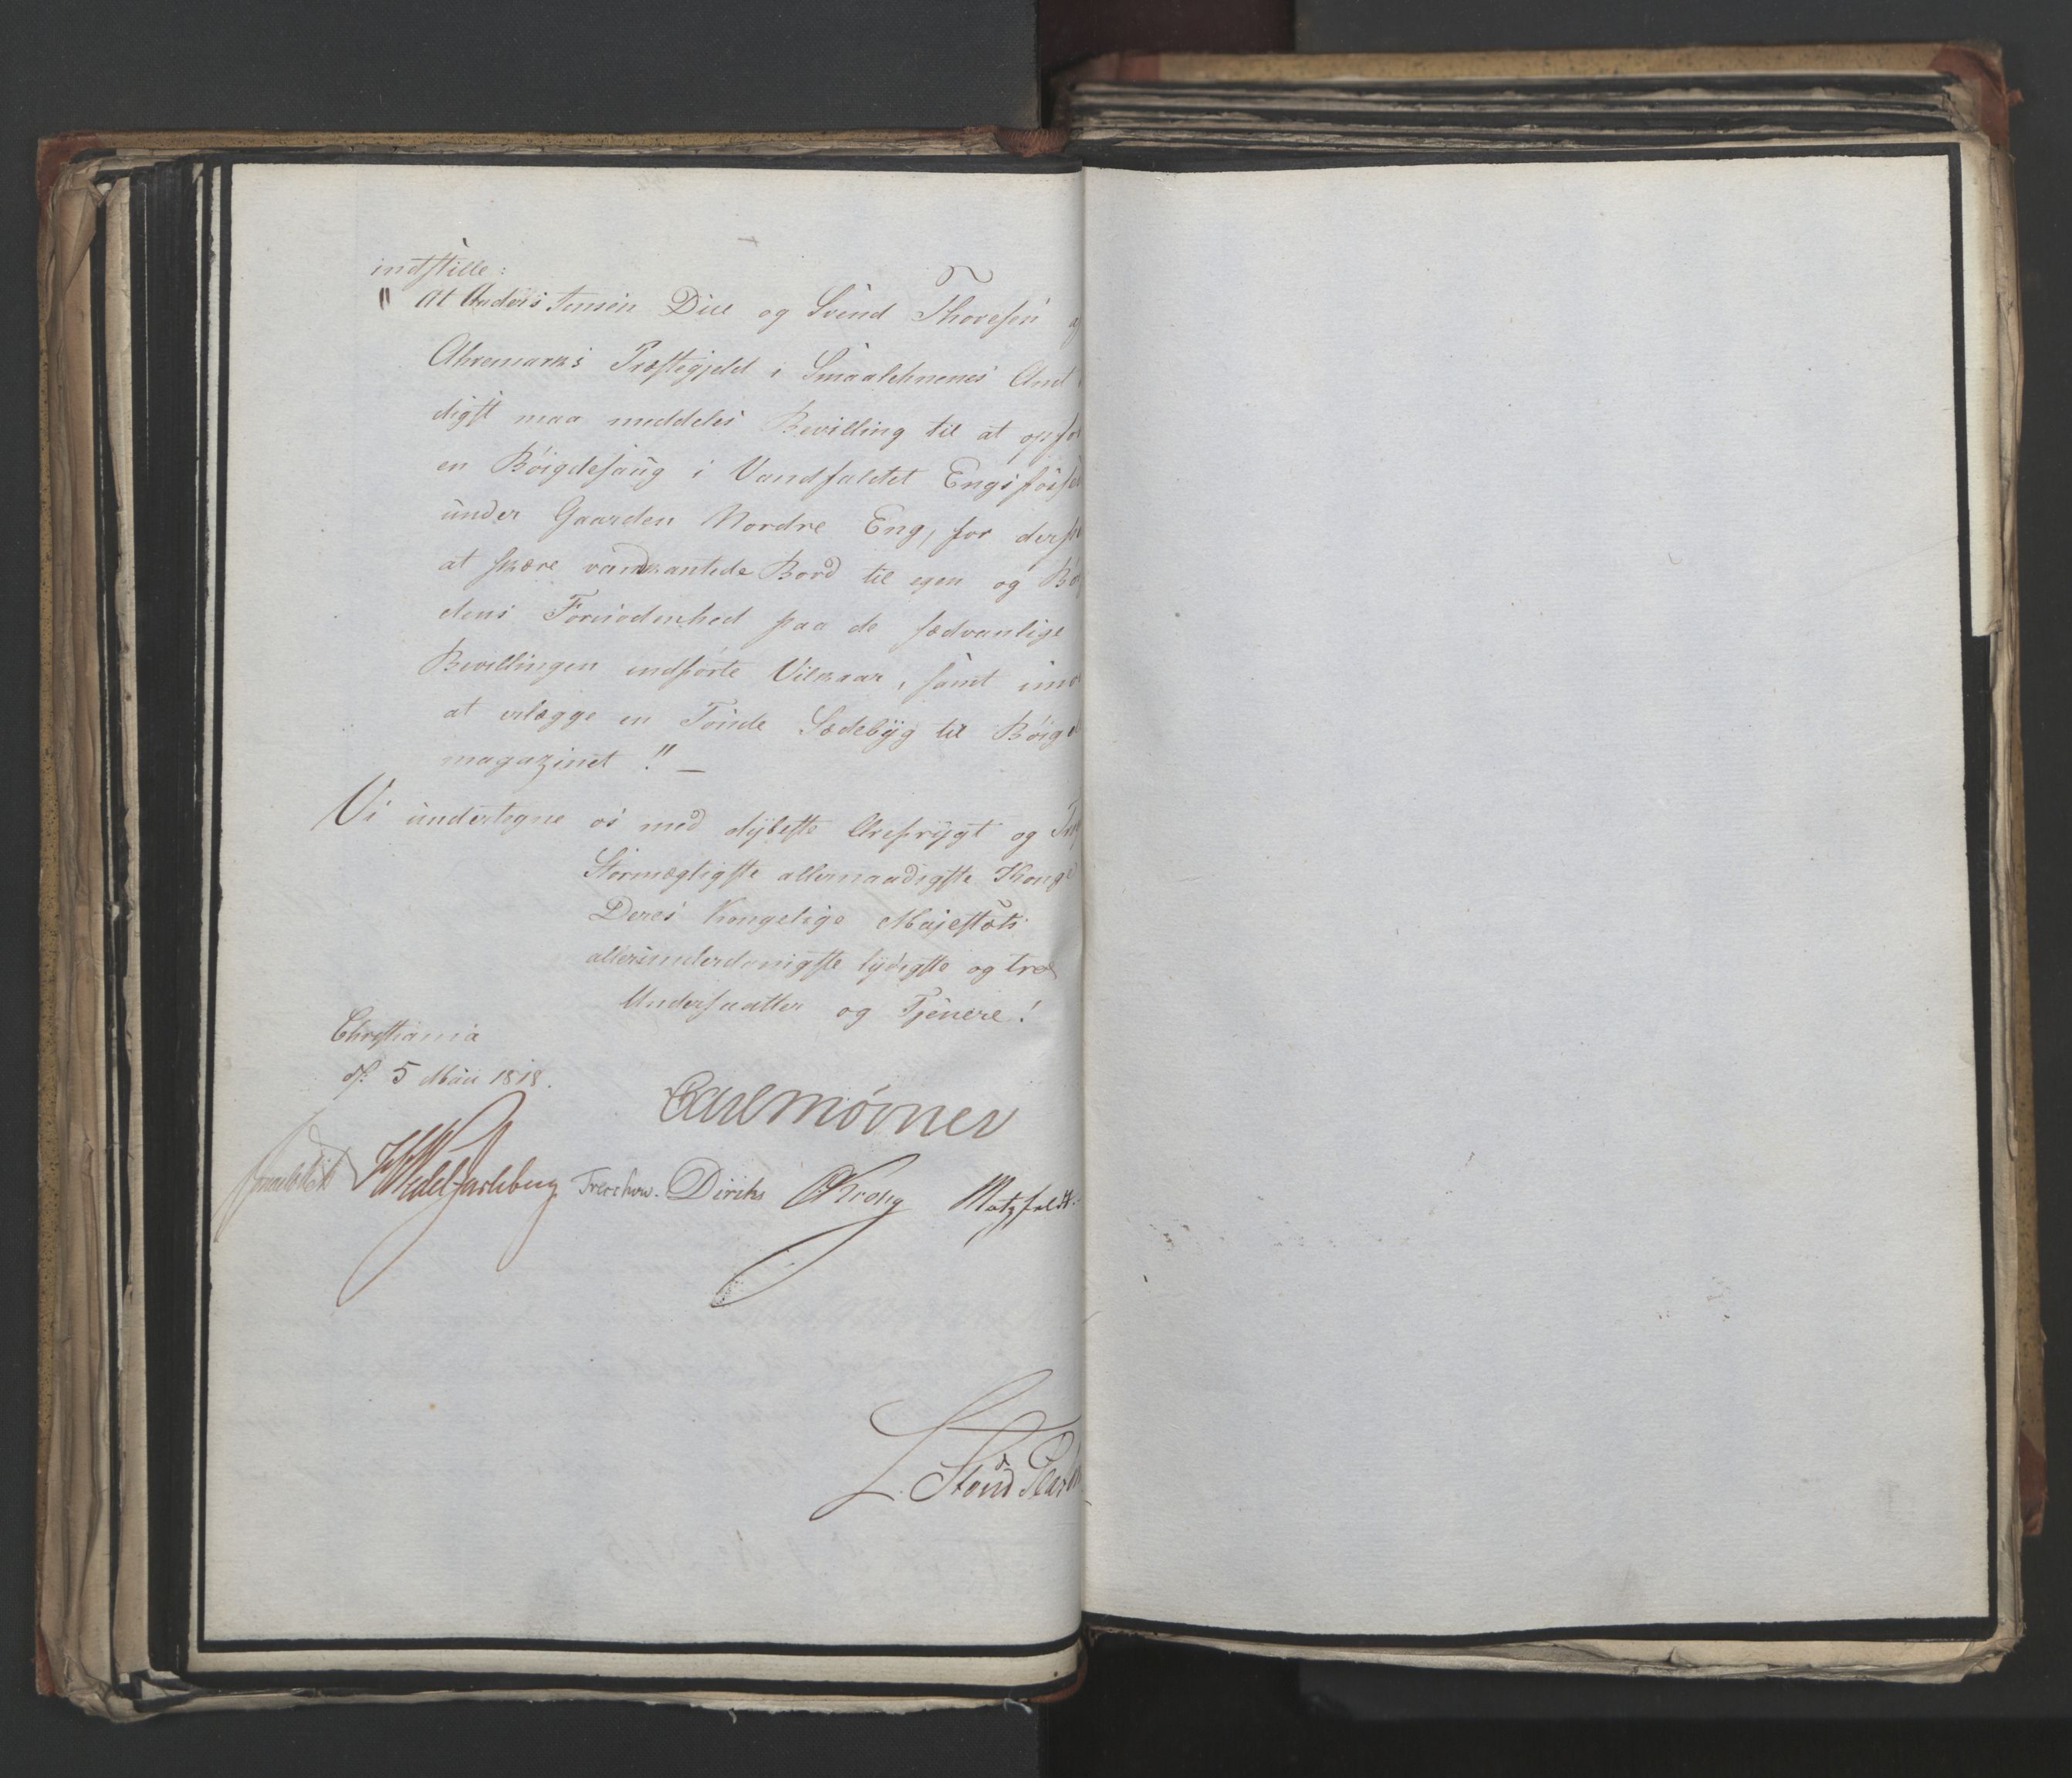 indstille:
" At Anders Jensen Due og Svend Thoresen af
Ahremarks Præstegjeld i Smaalehnenes Amt
digst maa meddeles Bevilling til at opfø
en Böigdesaug i Vandfaldet Engsfosse
under Gaarden Nordre Eng, for derpa
at skære vandkantede Bord til egen og Bö
dens Fornödenhed paa de sædvanlige
Bevillingen indförte Vilkaar, samt imo
at erlægge en Tönde Sædebyg til Böigd
magazinet!" —
Vi undertegne os med dybeste Ærefrygt og
Stormægtigste allernaadigste Konge
Deres Kongelige Majestæts
allerunderdanigste lydigste og troe
Undersaatter og Tjenere!
Christiania
d: 5 Maii 1818.
Carl Mörner
Sommerhielm HWedel Jarlsberg Treschow. Diriks CKrohg Motzfeldt.
L. Stoud Platou